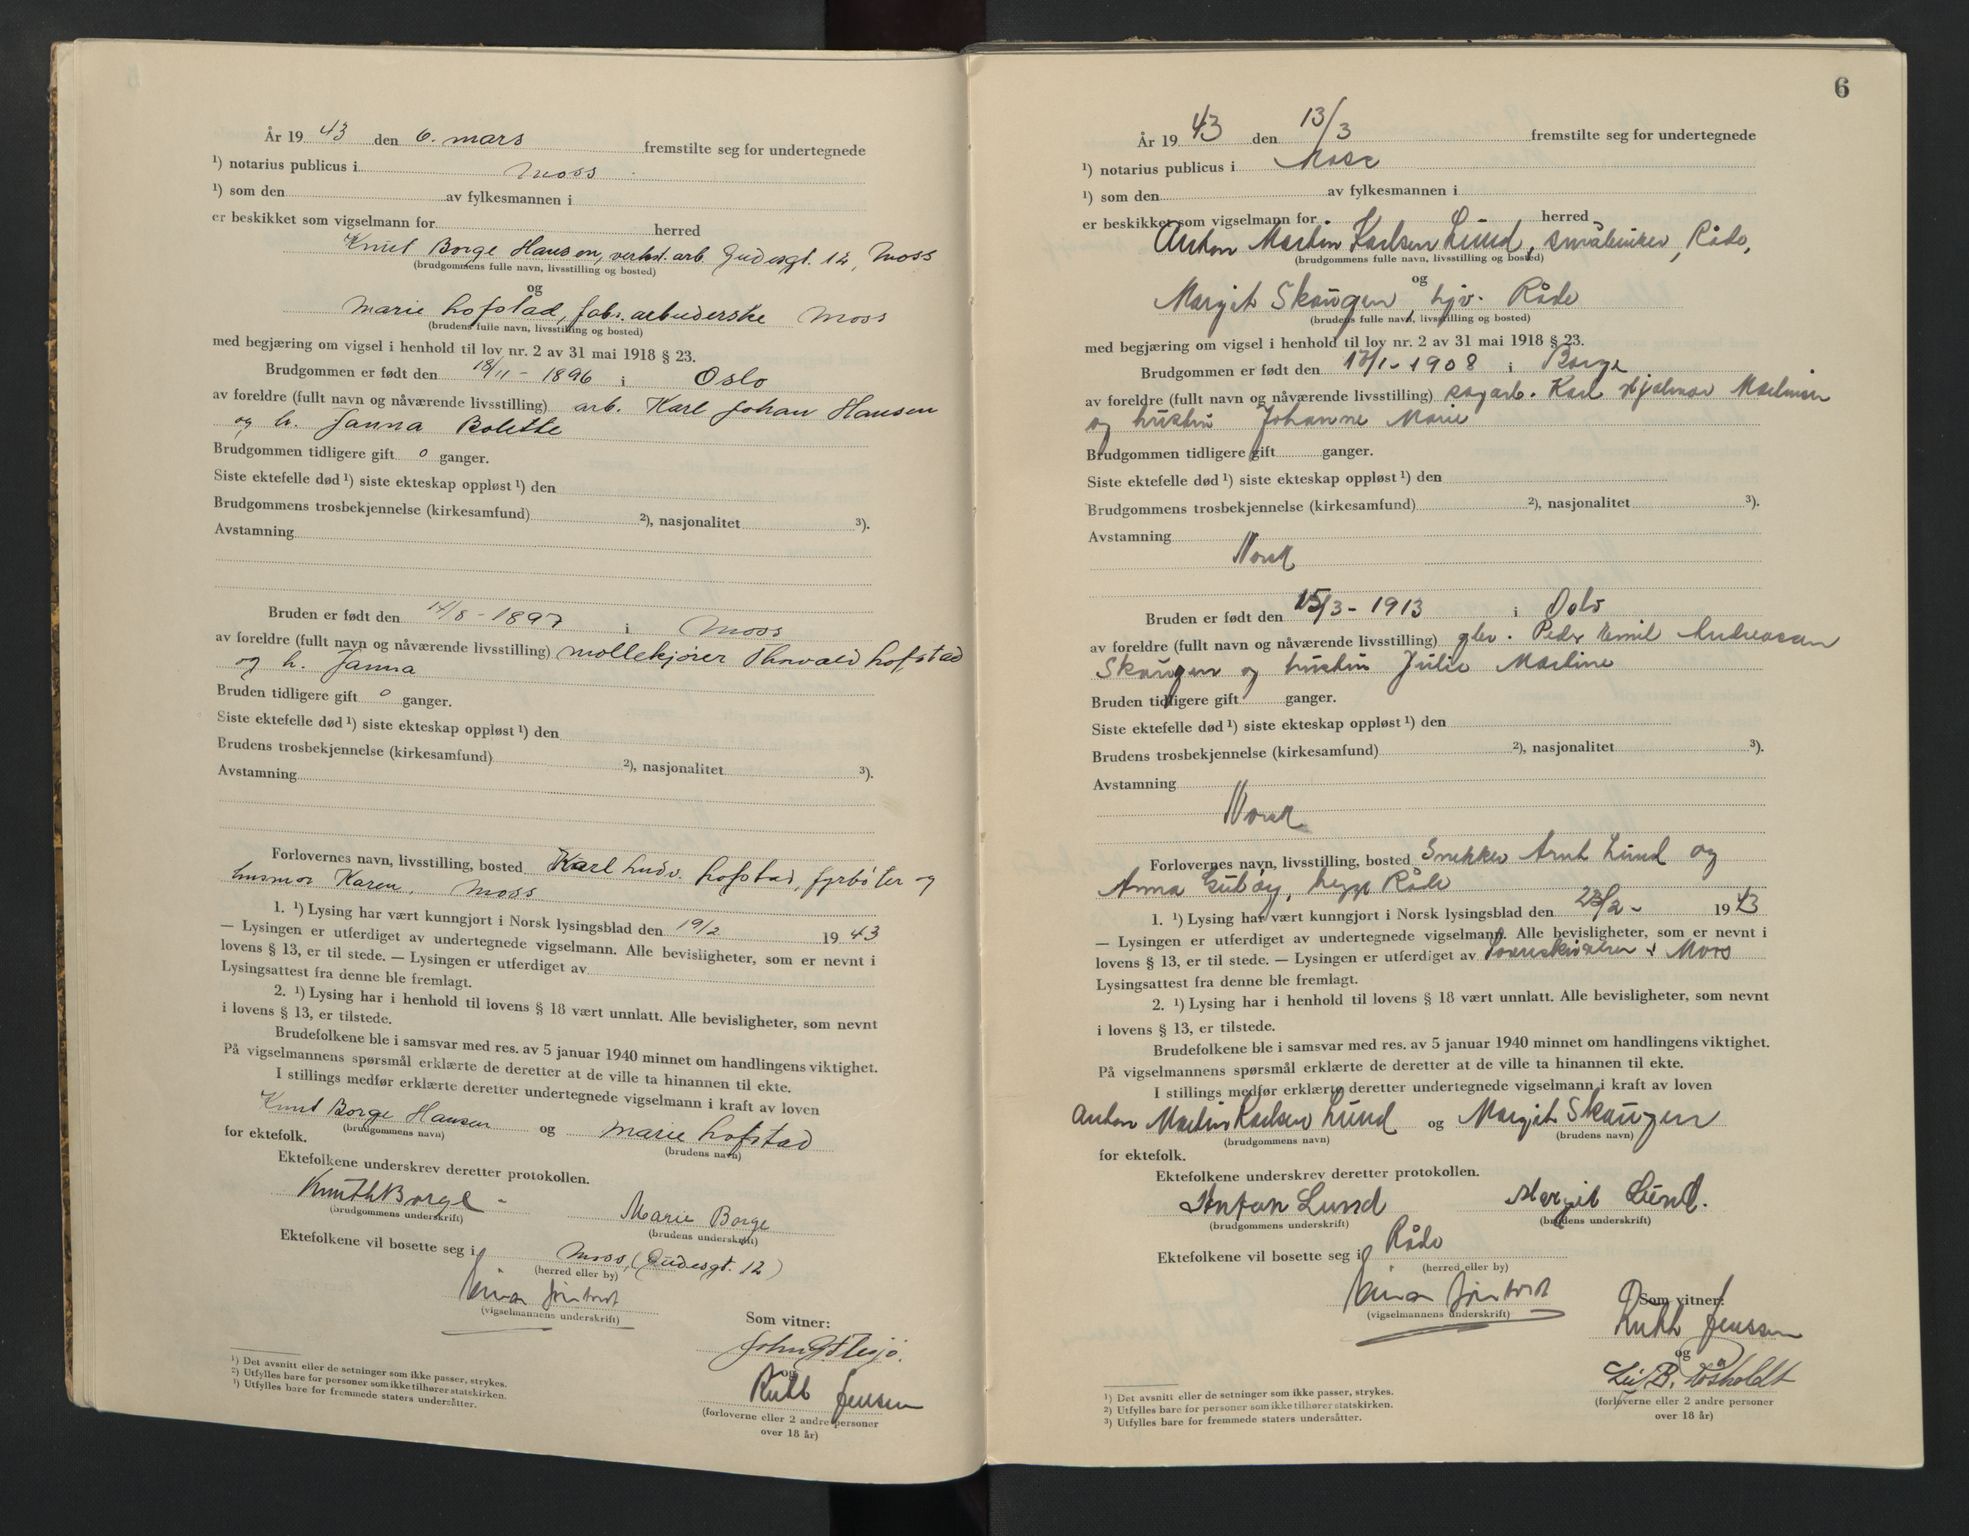 År 19 43 den 6. mars fremstilte seg for undertegnede
¹) notarius publicus i Moss
¹) som den av fylkesmannen i
er beskikket som vigselmann for herred
Knut Borge Hansen, verkst. arb. Gudesgt. 12, Moss
(brudgommens fulle navn, livsstilling og bosted)
og
Marie Hofstad, fabr. arbeiderske Moss
(brudens fulle navn, livsstilling og bosted)
med begjæring om vigsel i henhold til lov nr. 2 av 31 mai 1918 § 23.
Brudgommen er født den 18/11 - 1896 i Oslo
av foreldre (fullt navn og nåværende livsstilling) arb. Karl Johan Hansen
og h. Janna Bolette
Brudgommen tidligere gift 0 ganger.
Siste ektefelle død ¹) siste ekteskap oppløst ¹) den
Brudgommens trosbekjennelse (kirkesamfund) ²), nasjonalitet ³).
Avstamning
Bruden er født den 14/8 - 1897 i Moss
av foreldre (fullt navn og nåværende livsstilling) møllekjører Thorvald Hofstad
og h. Janna
Bruden tidligere gift 0 ganger.
Siste ektefelle død ¹) siste ekteskap oppløst ¹) den
Brudens trosbekjennelse (kirkesamfund) ²), nasjonalitet ³).
Avstamning
Forlovernes navn, livsstilling, bosted Karl Ludv. Hofstad, fyrbøter og
husmor Karen, Moss
1. ¹) Lysing har vært kunngjort i Norsk lysingsblad den 19/2 19 43
— Lysingen er utferdiget av undertegnede vigselmann. Alle bevisligheter, som er nevnt i
lovens § 13, er til stede. — Lysingen er utferdiget av
Lysingsattest fra denne ble fremlagt.
2. ¹) Lysing har i henhold til lovens § 18 vært unnlatt. Alle bevisligheter, som nevnt
i lovens § 13, er tilstede.
Brudefolkene ble i samsvar med res. av 5 januar 1940 minnet om handlingens viktighet.
På vigselmannens spørsmål erklærte de deretter at de ville ta hinannen til ekte.
I stillings medfør erklærte deretter undertegnede vigselmann i kraft av loven
Knut Borge Hansen og Marie Hofstad
(brudgommens navn) (brudens navn)
for ektefolk.
Ektefolkene underskrev deretter protokollen.
Knuth Borge Marie Borge
(brudgommens underskrift) (brudens underskrift)
Ektefolkene vil bosette seg i Moss, (Gudesgt. 12)
(herred eller by)
(vigselmannens underskrift)
Som vitner:
og
Ruth Jensen
(forloverne eller 2 andre personer
over 18 år)
¹) Det avsnitt eller de setninger som ikke passer, strykes.
²) Utfylles bare for personer som ikke tilhører statskirken.
³) Utfylles bare for fremmede staters undersåtter.
6
År 19 43 den 13/3 fremstilte seg for undertegnede
¹) notarius publicus i Moss
¹) som den av fylkesmannen i
er beskikket som vigselmann for herred
Anton Martin Karlsen Lund, småbruker, Råde,
(brudgommens fulle navn, livsstilling og bosted)
og
Margit Skaugen, hjv. Råde
(brudens fulle navn, livsstilling og bosted)
med begjæring om vigsel i henhold til lov nr. 2 av 31 mai 1918 § 23.
Brudgommen er født den 1908 i Borge
av foreldre (fullt navn og nåværende livsstilling) sagarb. Karl Hjalmar
og hustru Johanne Marie
Brudgommen tidligere gift ganger.
Siste ektefelle død ¹) siste ekteskap oppløst ¹) den
Brudgommens trosbekjennelse (kirkesamfund) ²), nasjonalitet ³).
Avstamning
Norsk
Bruden er født den 15/3 - 1913 i Oslo
av foreldre (fullt navn og nåværende livsstilling) Peder Emil Andreassen
Skaugen og hustru Julie Martine
Bruden tidligere gift ganger.
Siste ektefelle død ¹) siste ekteskap oppløst ¹) den
Brudens trosbekjennelse (kirkesamfund) ²), nasjonalitet ³).
Avstamning
Norsk
Forlovernes navn, livsstilling, bosted Snekker Arnt Lund og
Anna Råde
1. ¹) Lysing har vært kunngjort i Norsk lysingsblad den 23/2 - 19 43
— Lysingen er utferdiget av undertegnede vigselmann. Alle bevisligheter, som er nevnt i
lovens § 13, er til stede. — Lysingen er utferdiget av Sorenskriveren i Moss
Lysingsattest fra denne ble fremlagt.
2. ¹) Lysing har i henhold til lovens § 18 vært unnlatt. Alle bevisligheter, som nevnt
i lovens § 13, er tilstede.
Brudefolkene ble i samsvar med res. av 5 januar 1940 minnet om handlingens viktighet.
På vigselmannens spørsmål erklærte de deretter at de ville ta hinannen til ekte.
I stillings medfør erklærte deretter undertegnede vigselmann i kraft av loven
Anton Martin Karlsen Lund og Margit Skaugen
(brudgommens navn) (brudens navn)
for ektefolk.
Ektefolkene underskrev deretter protokollen.
Anton Lund Margit Lund.
(brudgommens underskrift) (brudens underskrift)
Ektefolkene vil bosette seg i Råde
(herred eller by)
(vigselmannens underskrift)
Som vitner:
Ruth Jensen
og
(forloverne eller 2 andre personer
over 18 år)
¹) Det avsnitt eller de setninger som ikke passer, strykes.
²) Utfylles bare for personer som ikke tilhører statskirken.
³) Utfylles bare for fremmede staters undersåtter.